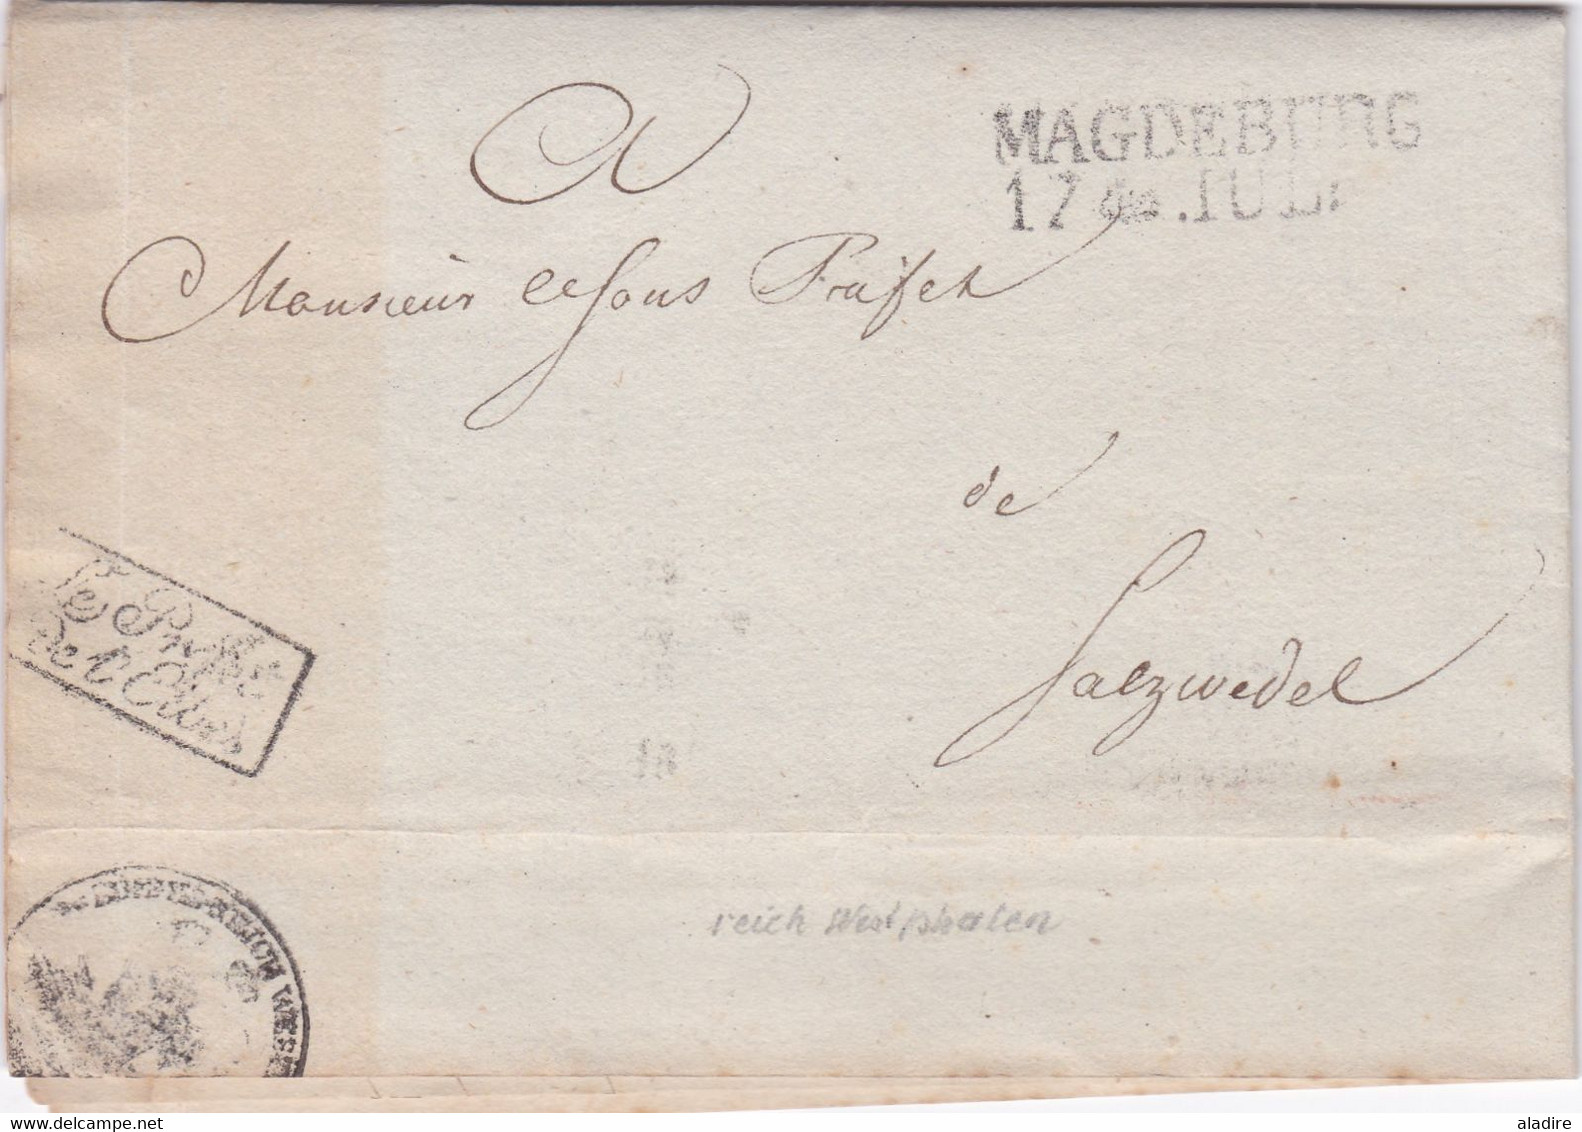 MAGDEBURG
17 .JUL.
A
Monsieur le Sous Praefet
de
Salzwedel
Le Préfet
De l'Elbe
reich Westphalen
WEST
aladire